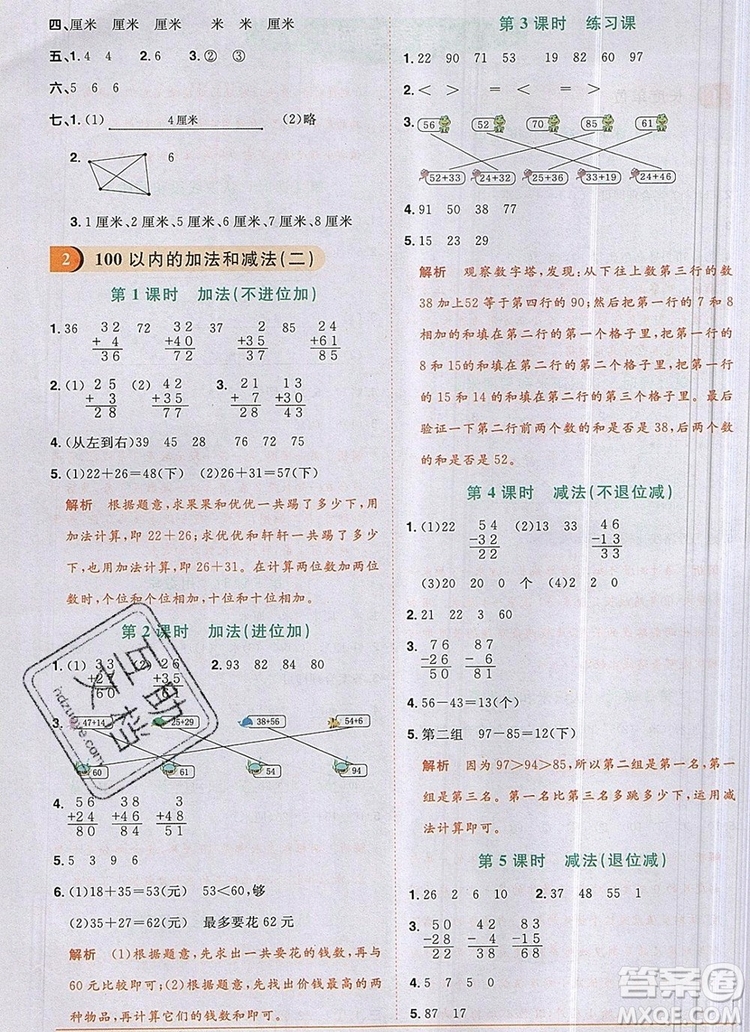 四、厘米 厘米 厘米 米 米 厘米
五、1.4 4 2.6 3.② ③
六、5 6 6
七、1.(1) 4厘米 (2)略
2. 6
3.1厘米、2厘米、3厘米、5厘米、7厘米、8厘米
2 100以内的加法和减法(二)
第1课时 加法(不进位加)
1.36 32 22 20 24
+ 4 +50 +35 +61
36 72 55 85
2.(1) 25 (2) 33 3. 21 30
+ 3 +35 + 7 +30
28 68 28 60
4.(从左到右)39 45 28 77
5.(1)22+26=48(下) (2)26+31=57(下)
解析 根据题意,求果果和优优一共踢了多少下,用
加法计算,即22+26;求优优和轩轩一共踢了多少
下,也用加法计算,即26+31。在计算两位数加两位
数时,个位和个位相加,十位和十位相加。
第2课时 加法(进位加)
1.(1) 33 (2) 26 2.93 82 84 80
60
3. 47+14 25+29 38+56 54+6
60 61 54 94
4. 56 38 56
+24 +46 +28
80 84 84
5.5 3 9 6
6.(1)18+35=53(元) 53<60,够
(2)35+27=62(元) 最多要花62元
解析 (1)根据题意,先求出一共要花的钱数,再与
60元比较即可;(2)根据题意,先找出花钱最高的两
种物品,再计算它们的钱数和即可。
第3课时 练习课
1.22 90 71 19 82 60 97
2.< > = < >
3. 56 52 70 85 61
52+33 24+32 25+36 28+24 24+46
4.91 50 38
5.15 23 29
解析 观察数字塔,发现:从下往上数第三行的数
38加上52等于第四行的90;然后把第一行的7和8
相加的和填在第二行的第一个格子里,把第一行的
8和15的和填在第二行的第二个格子里,把第一行
的15和14的和填在第二行的第三个格子里。最后
验证一下第二行前两个数的和是否是38,后两个数
的和是否是52。
第4课时 减法(不退位减)
1.(1)22 54 (2)13 33 46
-32 -13
22 33
(3)20 20 0 个 十
2.21 22 3 60
3. 76 87
-26 - 6
50 81
4.56-43=13(个)
5.第二组 97-85=12(下)
解析 因为97>94>85,所以第二组是第一名,第一
组是第三名。第一名比第三名多跳多少下,运用减
法计算即可。
第5课时 减法(退位减)
1.26 2 6 10 2.37 48 55 1
3. 50 50 83
-28 -42 -15
22 8 68
4.5 7 5 0
5.87 17
互助文档
hdzuoye.com
答案圈
MXQE.COM